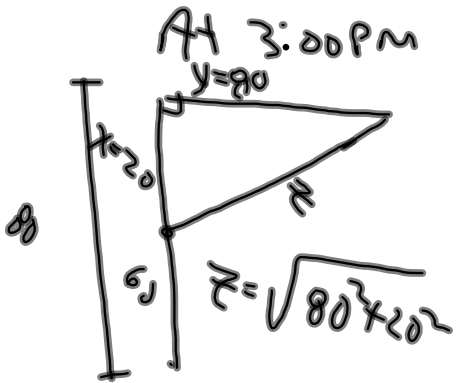 At 3:00PM
y=90
x=20
z
60
z=√80²+20²